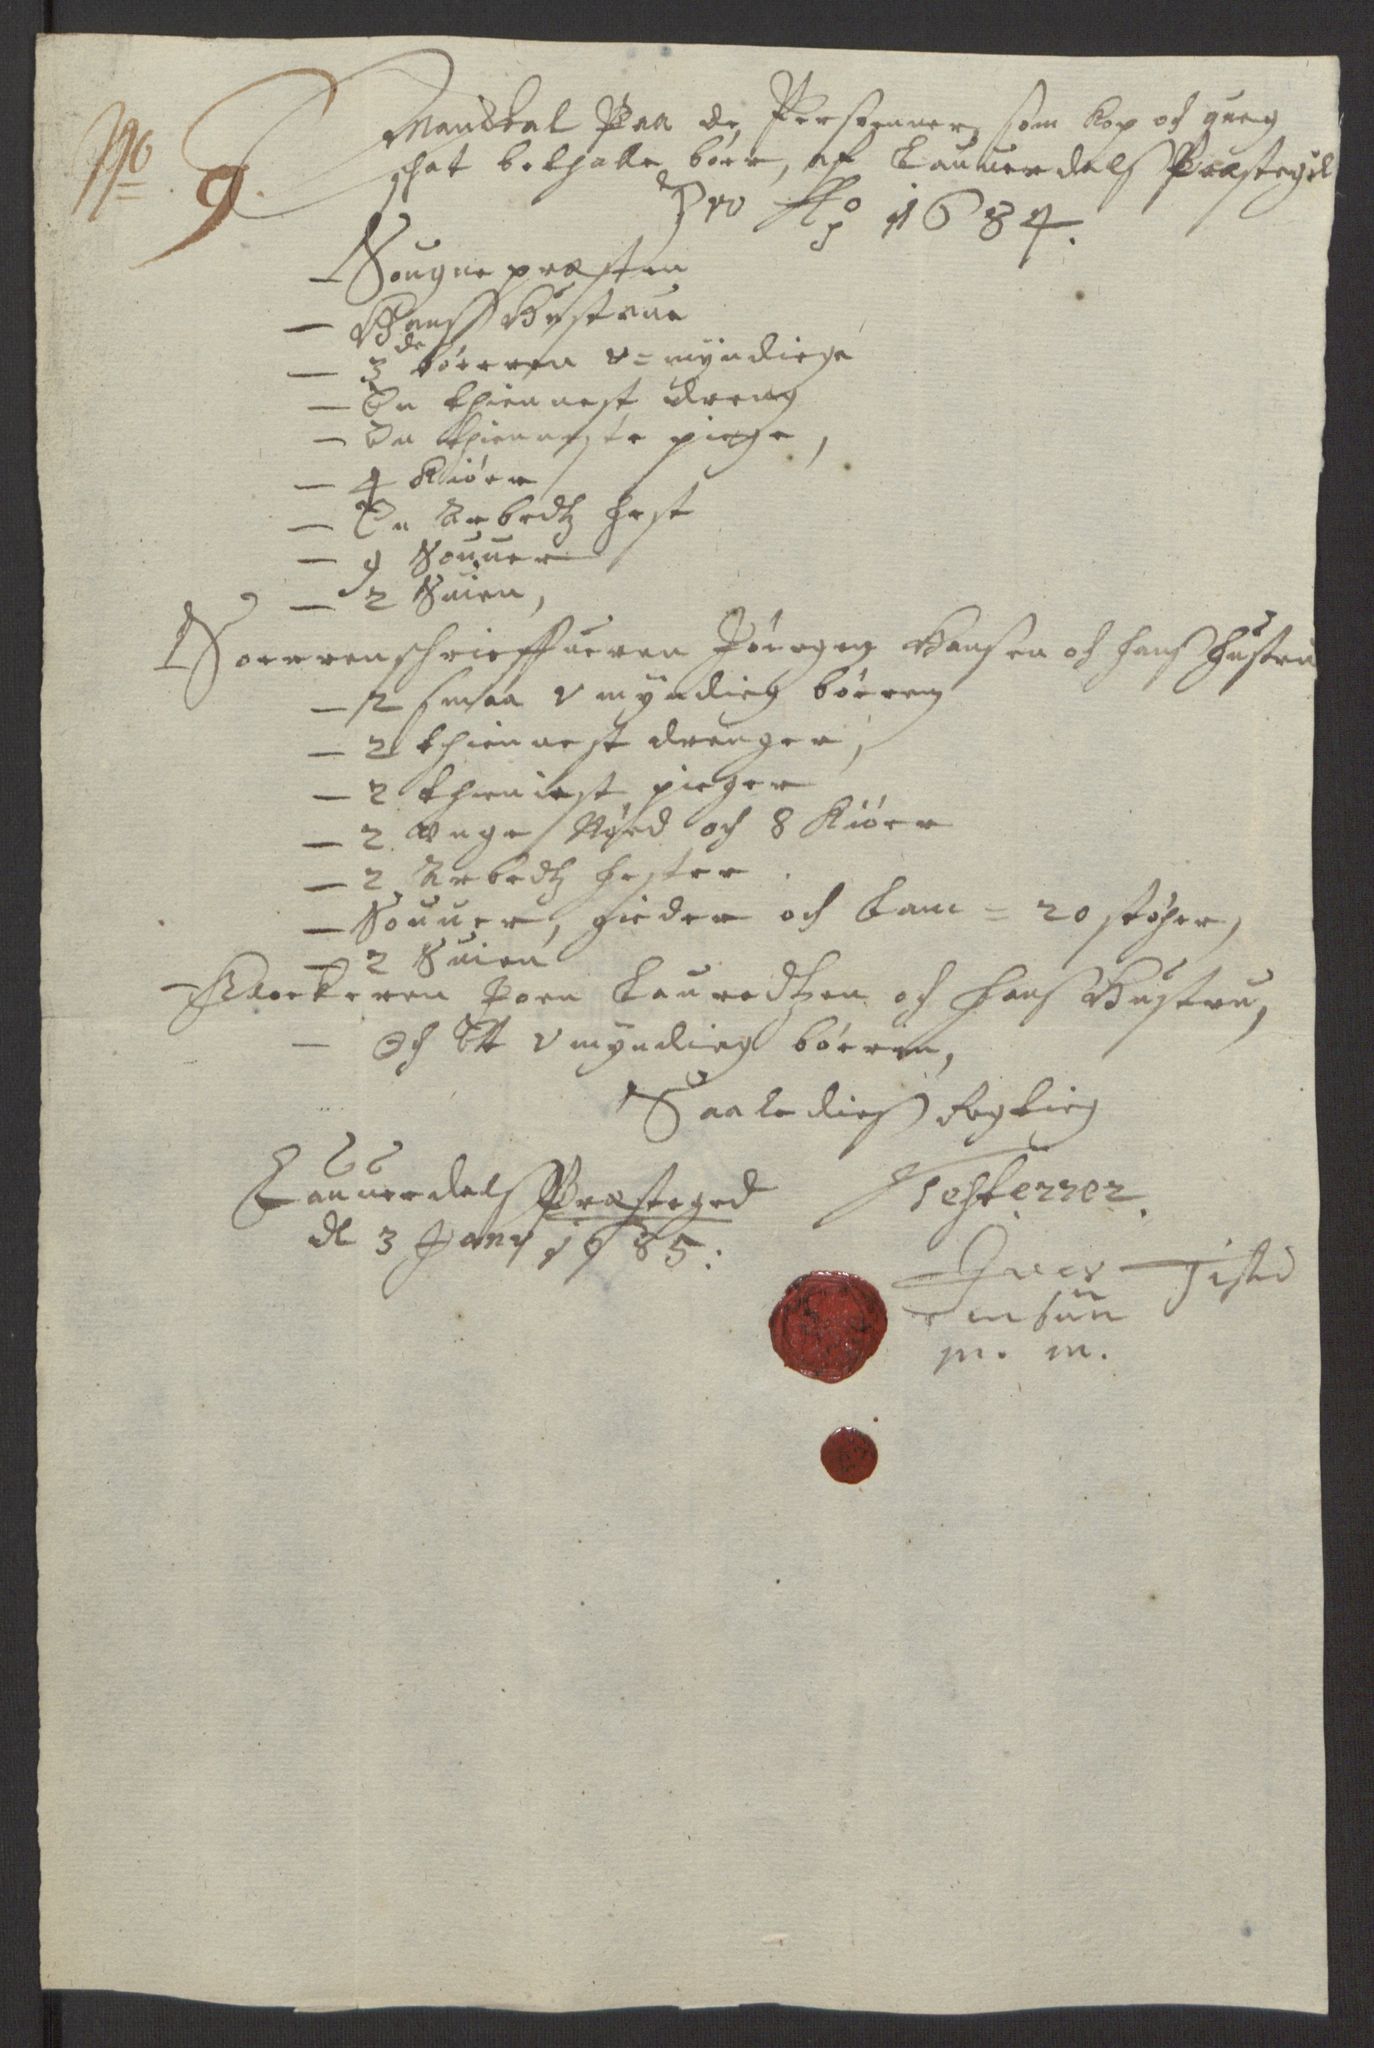 No
9.
Mandtal Paa de Personner som Kop och queg
schat bethalle bøer, af Lauuerdals Præstegield
Pro Ao 1684.
— Sougnepræsten
— Hans Hustrue
— 3 de børren v=myndiege
— En thiennest dreng
— En thienneste piege,
— 4 Kiøer
— En Arbedtz hest
— 9 Souuer
— 2 Suien,
Soerrenschrieffueren Jørgen Hansen och hans hustru
— 2 smaa vmyndieg børren
— 2 thiennest drenger,
— 2 thieniest pieger
— 2 Unge Nød och 8 Kiøer
— 2 Arbedtz hester
— Souuer, gieder och Lam = 20 støher,
— 2 Suien
Klockeren Joen Lauredtzen och hans Hustru,
— Och Et vmyndieg børren,
Saaledies Rigtieg
Lauuerdals Præstegied
dl 3 Jany 1685:
Testerrer
Iver Tisted
ensøn
m. m.